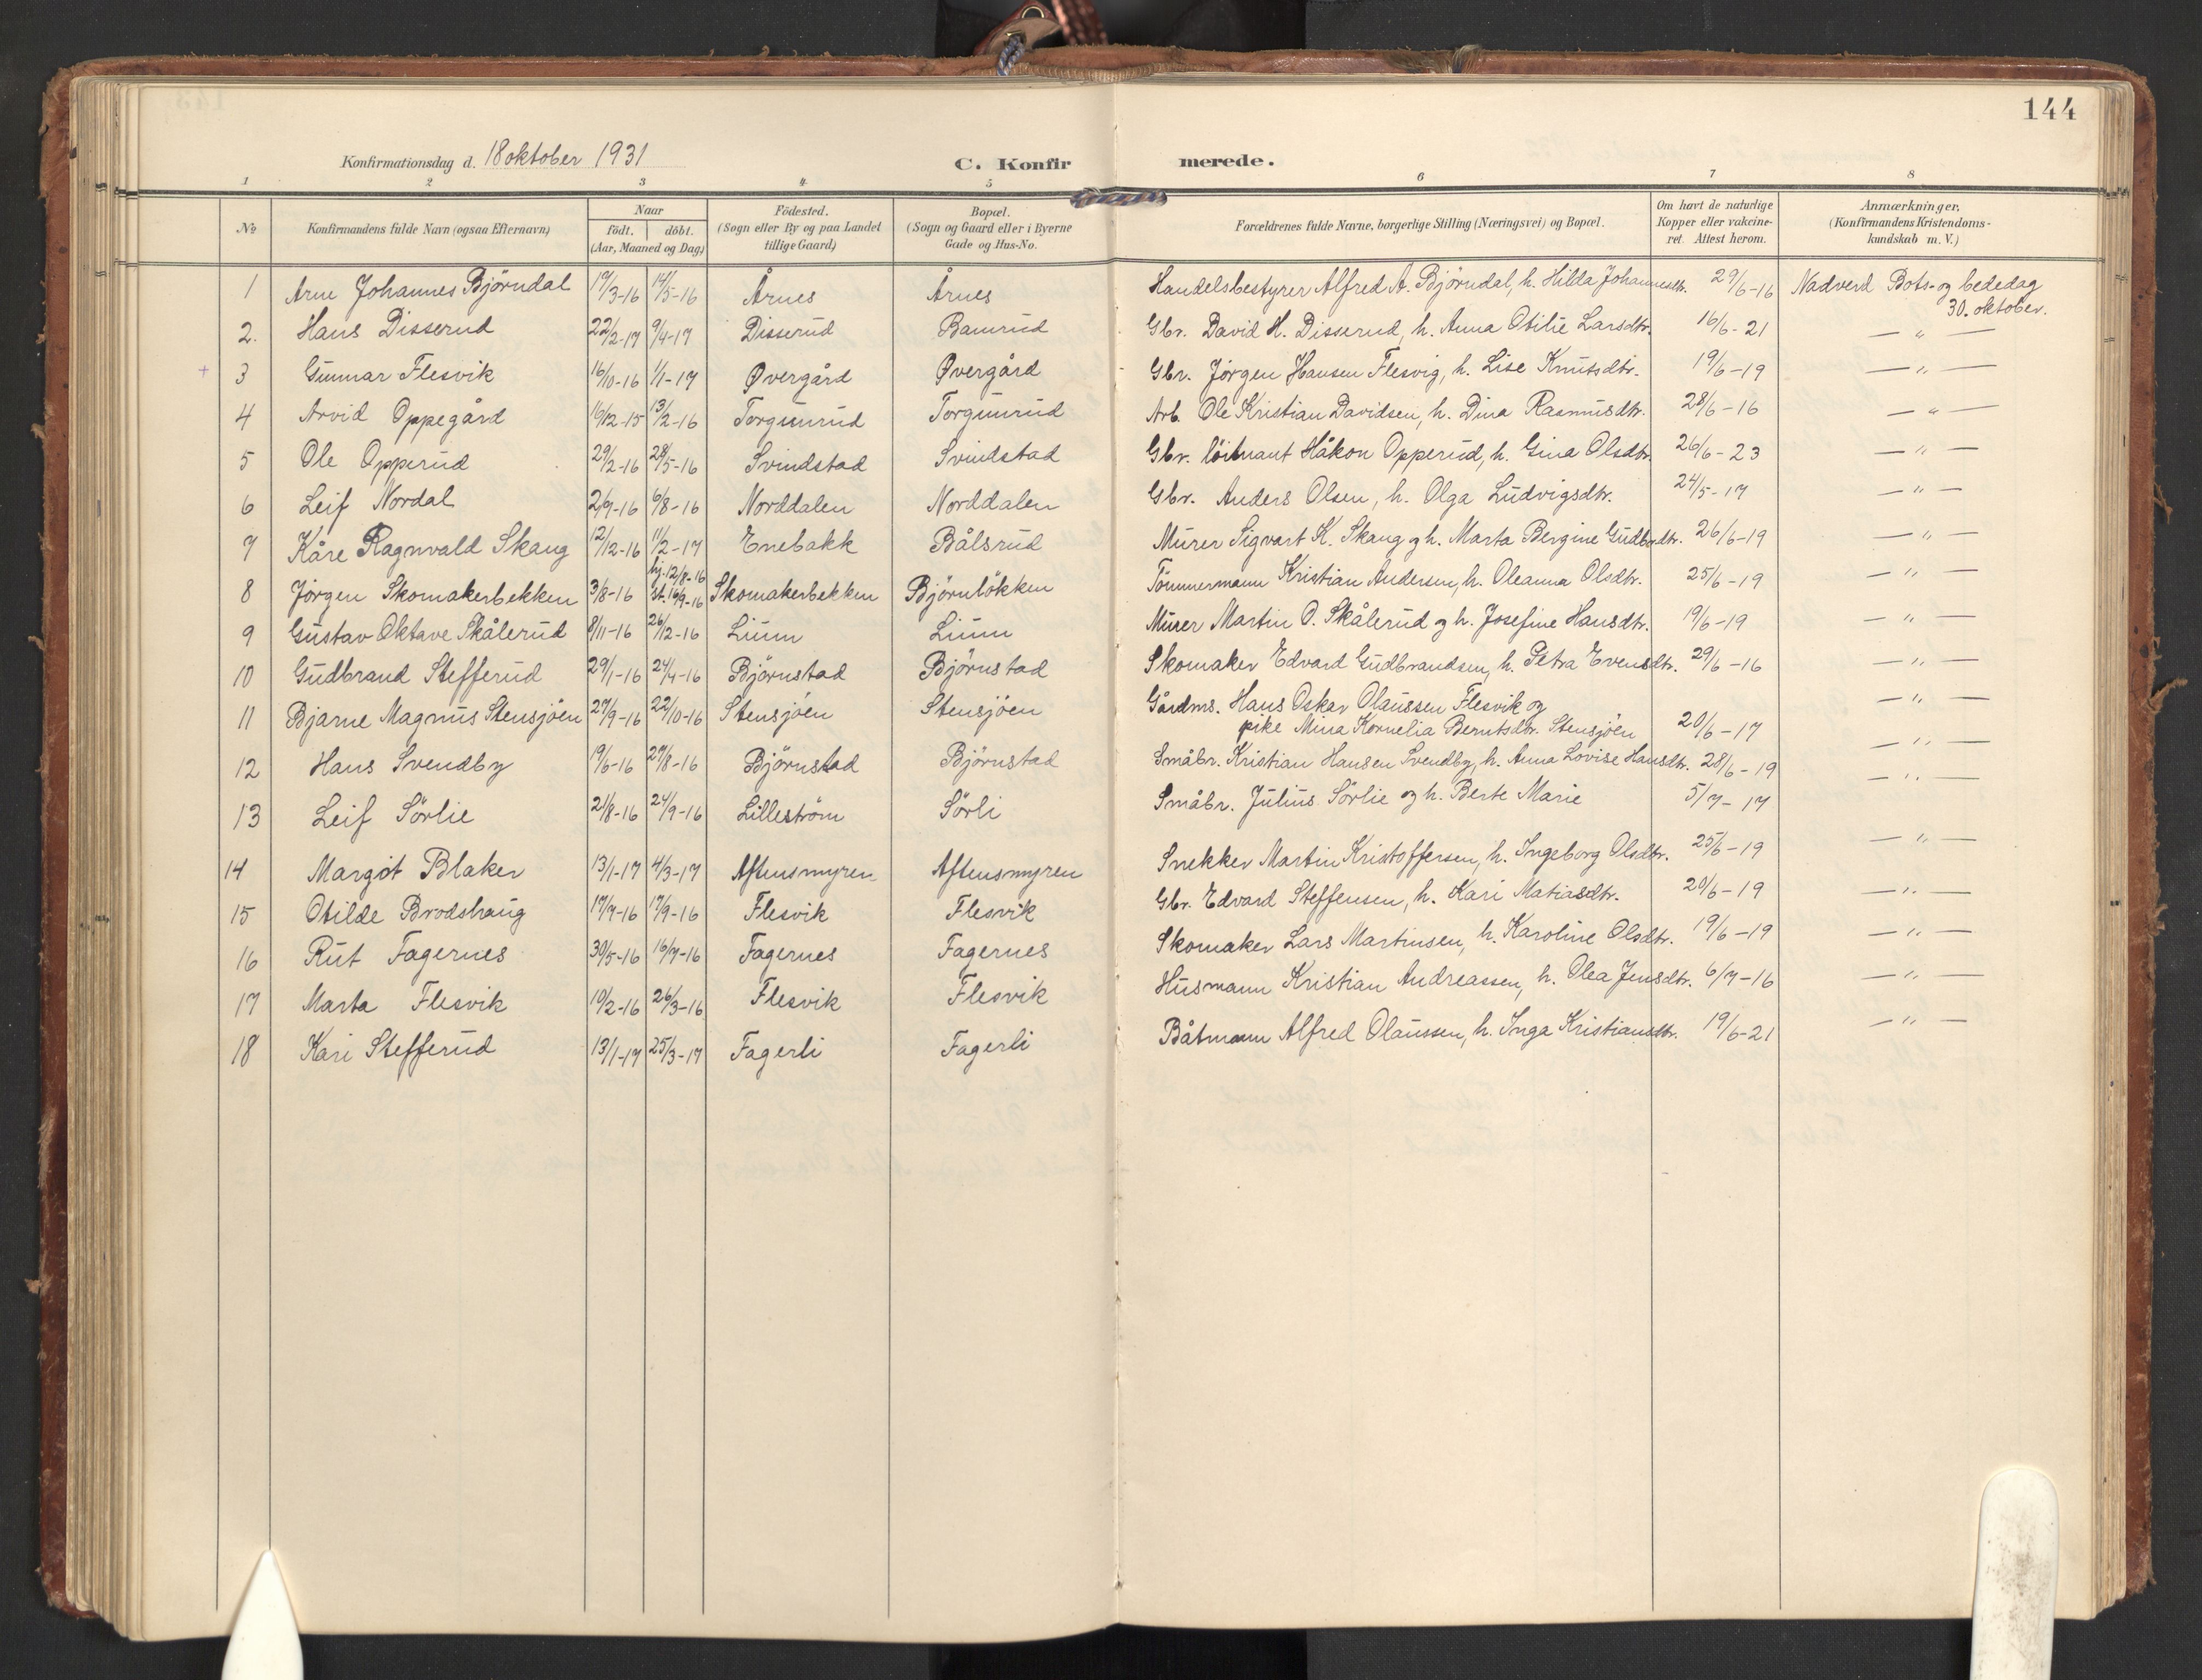 144
Konfirmationsdag d. 18 oktober 1931
C. Konfirmerede.
1 2 3 4 5 6 7 8
№ | Konfirmandens fulde Navn (ogsaa Efternavn) | Naar födt. | döbt. (Aar, Maaned og Dag) | Födested. (Sogn eller By og paa Landet tillige Gaard) | Bopæl. (Sogn og Gaard eller i Byerne Gade og Hus-No. | Forældrenes fulde Navne, borgerlige Stilling (Næringsvei) og Bopæl. | Om havt de naturlige Kopper eller vakcineret. Attest herom. | Anmærkninger, (Konfirmandens Kristendomskundskab m. V.)
1 Arne Johannes Björndal 17/3-16 14/5-16 Årnes Årnes Handelsbestyrer Alfred A. Björndal, h. Hilda Johannesdtr. 29/6-16 Nadverd Bots- og bededag 30. oktober.
2. Hans Disserud 22/2-17 9/4-17 Disserud Bamrud Gbr. David H. Disserud, h. Anna Otilie Larsdtr. 16/6-21 — „ —
+ 3 Gunnar Flesvik 16/10-16 1/1-17 Øvergård Øvergård Gbr. Jörgen Hansen Flesvig, h. Lise Knutsdtr. 19/6-19 — „ —
4 Arvid Oppegård 16/12-15 13/2-16 Torgunrud Torgunrud Arb. Ole Kristian Davidsen, h. Dina Rasmusdtr. 28/6-16 — „ —
5 Ole Opperud 29/2-16 28/5-16 Svindstad Svindstad Gbr. löitnant Håkon Opperud, h. Gina Olsdtr. 26/6-23 — „ —
6 Leif Nordal 6/8-16 Norddalen Norddalen Gbr. Anders Olsen, h. Olga Ludvigsdtr. 24/5-17 — „ —
7 Kåre Ragnvald Skaug 12/12-16 11/2-17 Enebakk Bålsrud Murer Sigvart K. Skaug og h. Marta Bergine Gudbrdtr. 26/6-19 — „ —
8 Jörgen Skomakerbekken 3/8-16 hj. 12/8-16 st. 16/9-16 Skomakerbekken Björnlökken Tömmermann Kristian Andersen, h. Oleanna Olsdtr. 25/6-19 — „ —
9 Gustav Oktave Skålerud 8/11-16 26/12-16 Lium Lium Murer Martin O. Skålerud og h. Josefine Hansdtr. 19/6-19 — „ —
10 Gudbrand Stefferud 29/1-16 24/4-16 Björnstad Björnstad Skomaker Edvard Gudbrandsen, h. Petra Evensdtr. 29/6-16 — „ —
11 Bjarne Magnus Stensjöen 27/9-16 22/10-16 Stensjöen Stensjöen Gårdms. Hans Oskar Olaussen Flesvik og — „ —
pike Mina Kornelia Berntsdtr. Stensjöen 20/6-17
12 Hans Svendby 19/6-16 27/8-16 Björnstad Björnstad Småbr. Kristian Hansen Svendby, h. Anna Lovise Hansdtr. 28/6-19 — „ —
13 Leif Sörlie 21/8-16 24/9-16 Lilleström Sörli Småbr. Julius Sörlie og h. Berte Marie 5/7-17 — „ —
14 Margot Blaker 13/1-17 4/3-17 Aftensmyren Aftensmyren Snekker Martin Kristoffersen, h. Ingeborg Olsdtr. 25/6-19 — „ —
15 Otilde Brodshaug 17/7-16 17/9-16 Flesvik Flesvik Gbr. Edvard Steffensen, h. Kari Matiasdtr. 20/6-19 — „ —
16 Rut Fagernes 30/5-16 16/7-16 Fagernes Fagernes Skomaker Lars Martinsen, h. Karoline Olsdtr. 19/6-19 — „ —
17 Marta Flesvik 10/2-16 26/3-16 Flesvik Flesvik Husmann Kristian Andreassen, h. Olea Jensdtr. 6/7-16 — „ —
18 Kari Stefferud 13/1-17 25/3-17 Fagerli Fagerli Båtmann Alfred Olaussen, h. Inga Kristiansdtr. 19/6-21 — „ —